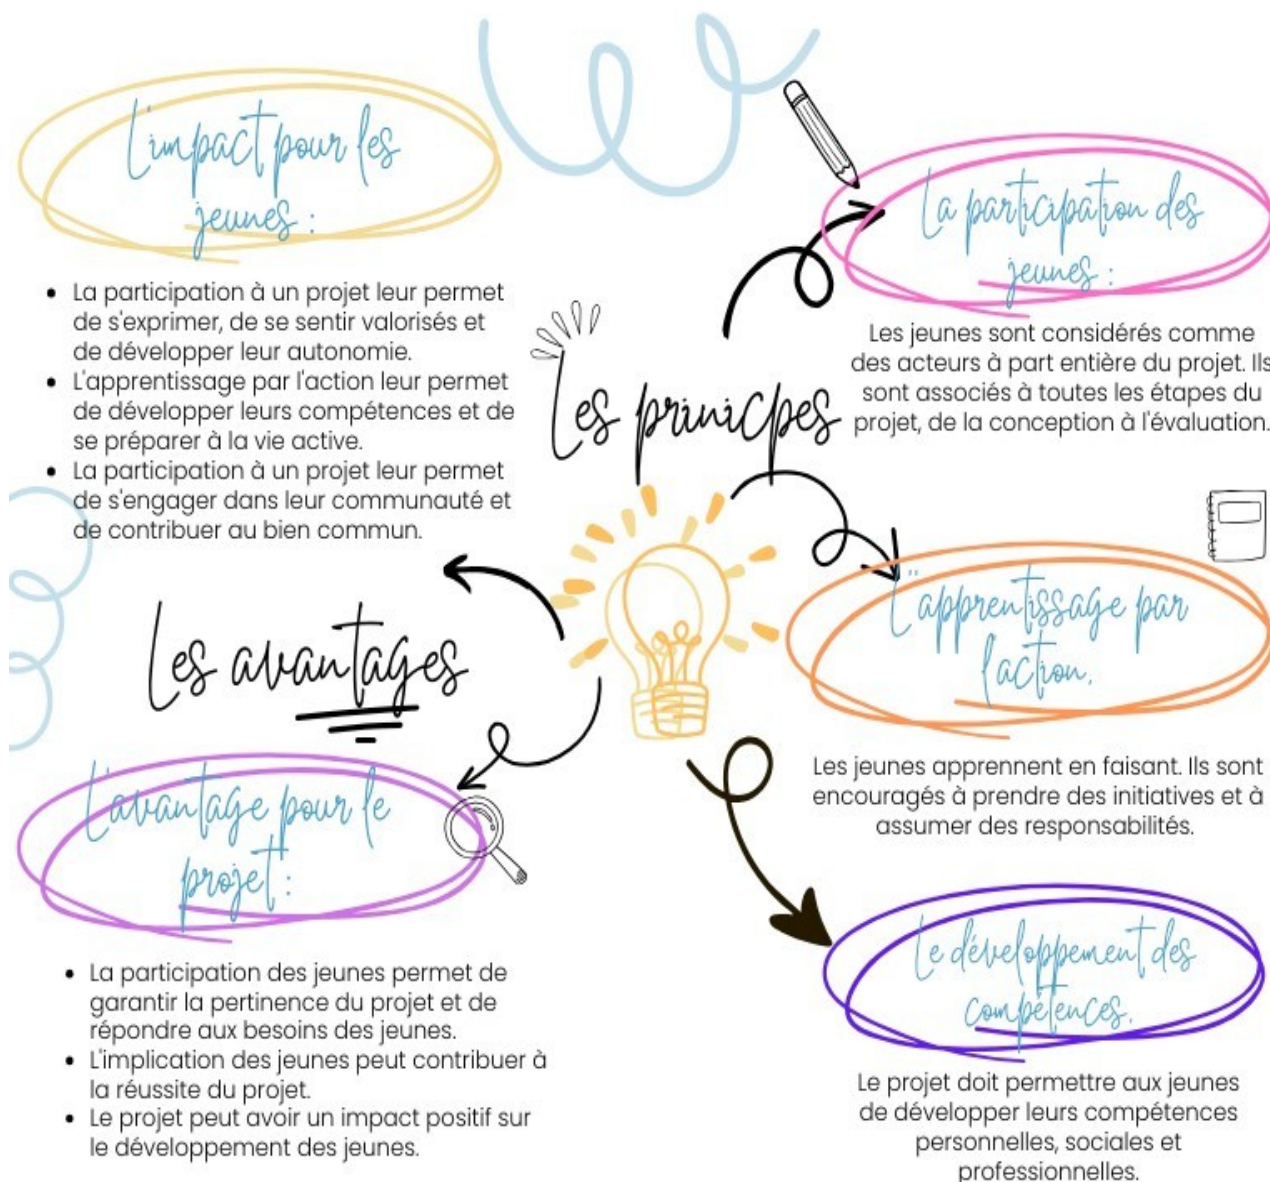 L'impact pour les
jeunes :
La participation à un projet leur permet
de s'exprimer, de se sentir valorisés et
de développer leur autonomie.
L'apprentissage par l'action leur permet
de développer leurs compétences et de
se préparer à la vie active.
La participation à un projet leur permet
de s'engager dans leur communauté et
de contribuer au bien commun.
Les avantages
L'avantage pour le
projet :
La participation des jeunes permet de
garantir la pertinence du projet et de
répondre aux besoins des jeunes.
L'implication des jeunes peut contribuer à
la réussite du projet.
Le projet peut avoir un impact positif sur
le développement des jeunes.
Les prinicpes
La participation des
jeunes :
Les jeunes sont considérés comme
des acteurs à part entière du projet. Ils
sont associés à toutes les étapes du
projet, de la conception à l'évaluation.
L"apprentissage par
l'action.
Les jeunes apprennent en faisant. Ils sont
encouragés à prendre des initiatives et à
assumer des responsabilités.
Le développement des
compétences.
Le projet doit permettre aux jeunes
de développer leurs compétences
personnelles, sociales et
professionnelles.